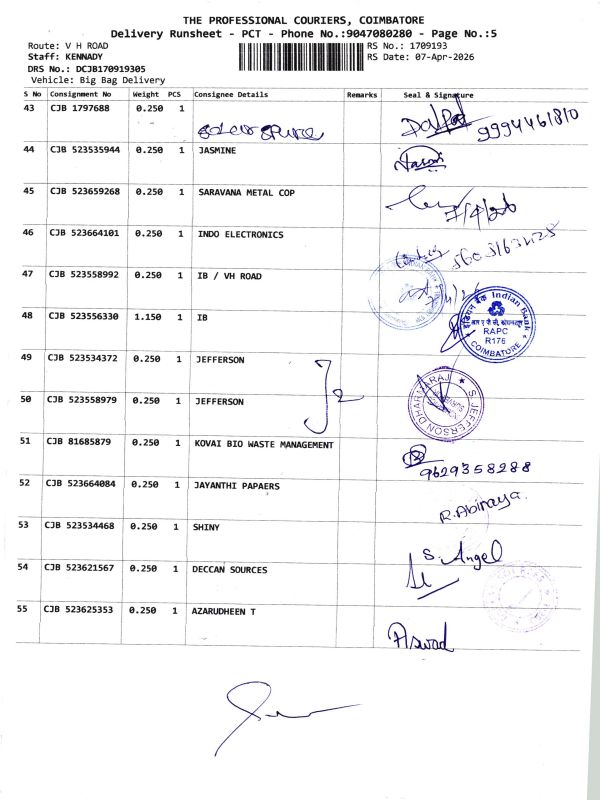 THE PROFESSIONAL COURIERS, COIMBATORE
Delivery Runsheet - PCT - Phone No.:9047080280 - Page No.:5
Route: V H ROAD
RS No.: 1709193
Staff: KENNADY
RS Date: 07-Apr-2026
DRS No.: DCJB170919305
Vehicle: Big Bag Delivery
S No Consignment No Weight PCS Consignee Details Remarks Seal & Signature
43 CJB 1797688 0.250 1
9994461810
44 CJB 523535944 0.250 1 JASMINE
45 CJB 523659268 0.250 1 SARAVANA METAL COP
7/4/26
46 CJB 523664101 0.250 1 INDO ELECTRONICS
47 CJB 523558992 0.250 1 IB / VH ROAD
48 CJB 523556330 1.150 1 IB
इंडियन बैंक Indian Bank
RAPC
R176
COIMBATORE
49 CJB 523534372 0.250 1 JEFFERSON
50 CJB 523558979 0.250 1 JEFFERSON
2
S. JEFFERSON DHARMARAJ
51 CJB 81685879 0.250 1 KOVAI BIO WASTE MANAGEMENT
9629358288
52 CJB 523664084 0.250 1 JAYANTHI PAPAERS
R. Abinaya.
53 CJB 523534468 0.250 1 SHINY
S. Angel
54 CJB 523621567 0.250 1 DECCAN SOURCES
55 CJB 523625353 0.250 1 AZARUDHEEN T
Aswad